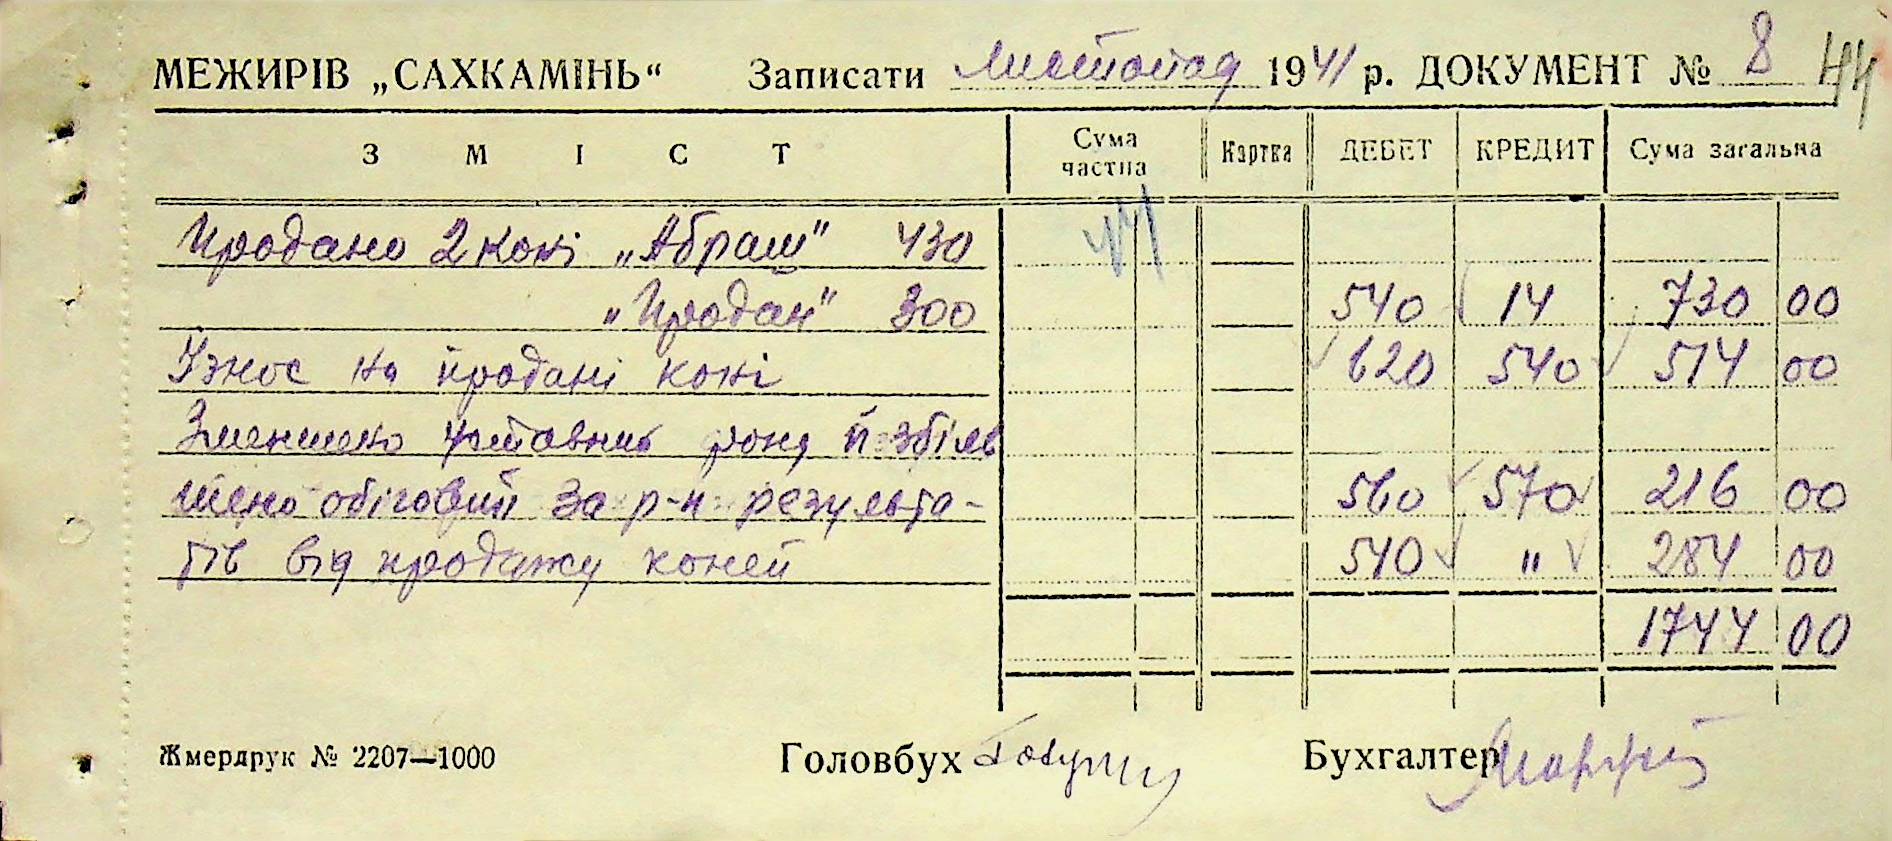 МЕЖИРІВ „САХКАМІНЬ“ Записати листопад 1941 р. ДОКУМЕНТ № 8 44
ЗМІСТ Сума частна Картка ДЕБЕТ КРЕДИТ Сума загальна
Продано 2 коні „Абраш" 430
„Продан" 300 540 14 730 00
Ізнос на продані коні 620 540 514 00
Зменшено уставний фонд й збіль
шено обіговий за р-к результа- 560 570 216 00
тів від продажу коней 540 " 284 00
1744 00
Жмердрук № 2207—1000 Головбух Бухгалтер